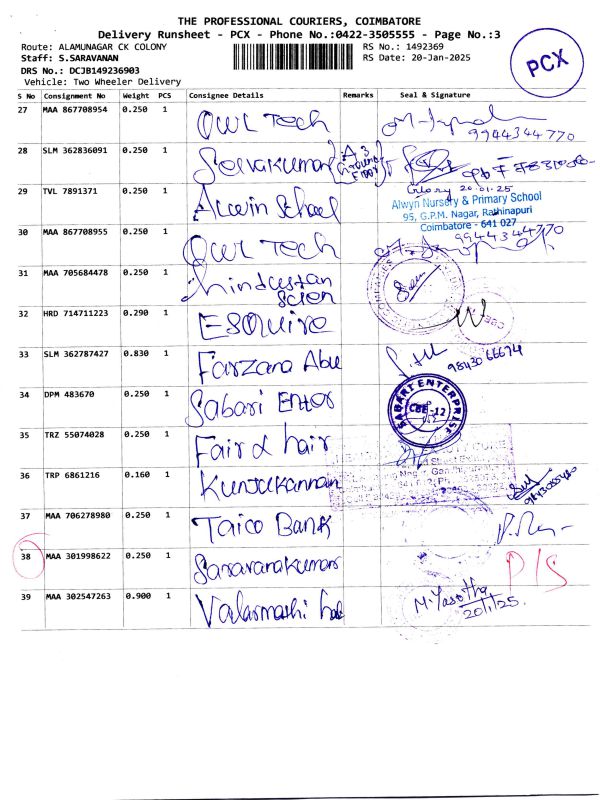 THE PROFESSIONAL COURIERS, COIMBATORE
Delivery Runsheet - PCX - Phone No.:0422-3505555 - Page No.:3
Route: ALAMUNAGAR CK COLONY RS No.: 1492369
Staff: S.SARAVANAN RS Date: 20-Jan-2025
DRS No.: DCJB149236903
Vehicle: Two Wheeler Delivery
PCX
S No Consignment No Weight PCS Consignee Details Remarks Seal & Signature
27 MAA 867708954 0.250 1 OWL Tech
9944344770
28 SLM 362836091 0.250 1 Selvakumar
29 TVL 7891371 0.250 1 Alwin School
20.01.25
Alwyn Nursery & Primary School
95, G.P.M. Nagar, Rathinapuri
Coimbatore - 641 027
30 MAA 867708955 0.250 1 OWL Tech
9944344770
31 MAA 705684478 0.250 1 hindustan
Scien
32 HRD 714711223 0.290 1 ESQUIre
33 SLM 362787427 0.830 1 Farzana Abu
98430 66674
34 DPM 483670 0.250 1 Sabari Enter
SABARI ENTERPRISE
CBE-12
35 TRZ 55074028 0.250 1 Fair & hair
36 TRP 6861216 0.160 1 Kunjukannan
37 MAA 706278980 0.250 1 Taico Bank
38 MAA 301998622 0.250 1 Saravanakumar
D/S
39 MAA 302547263 0.900 1
M. Yasotha
20/1/25.